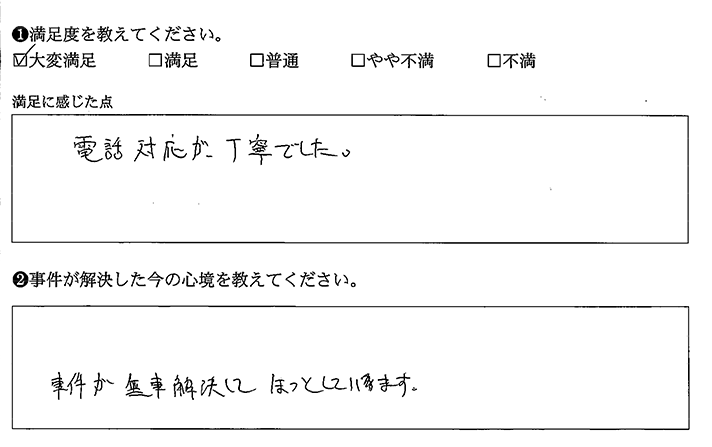 ❶満足度を教えてください。
☑大変満足 □満足 □普通 □やや不満 □不満
満足に感じた点
電話対応が、丁寧でした。
❷事件が解決した今の心境を教えてください。
事件が無事解決して ほっとしています。